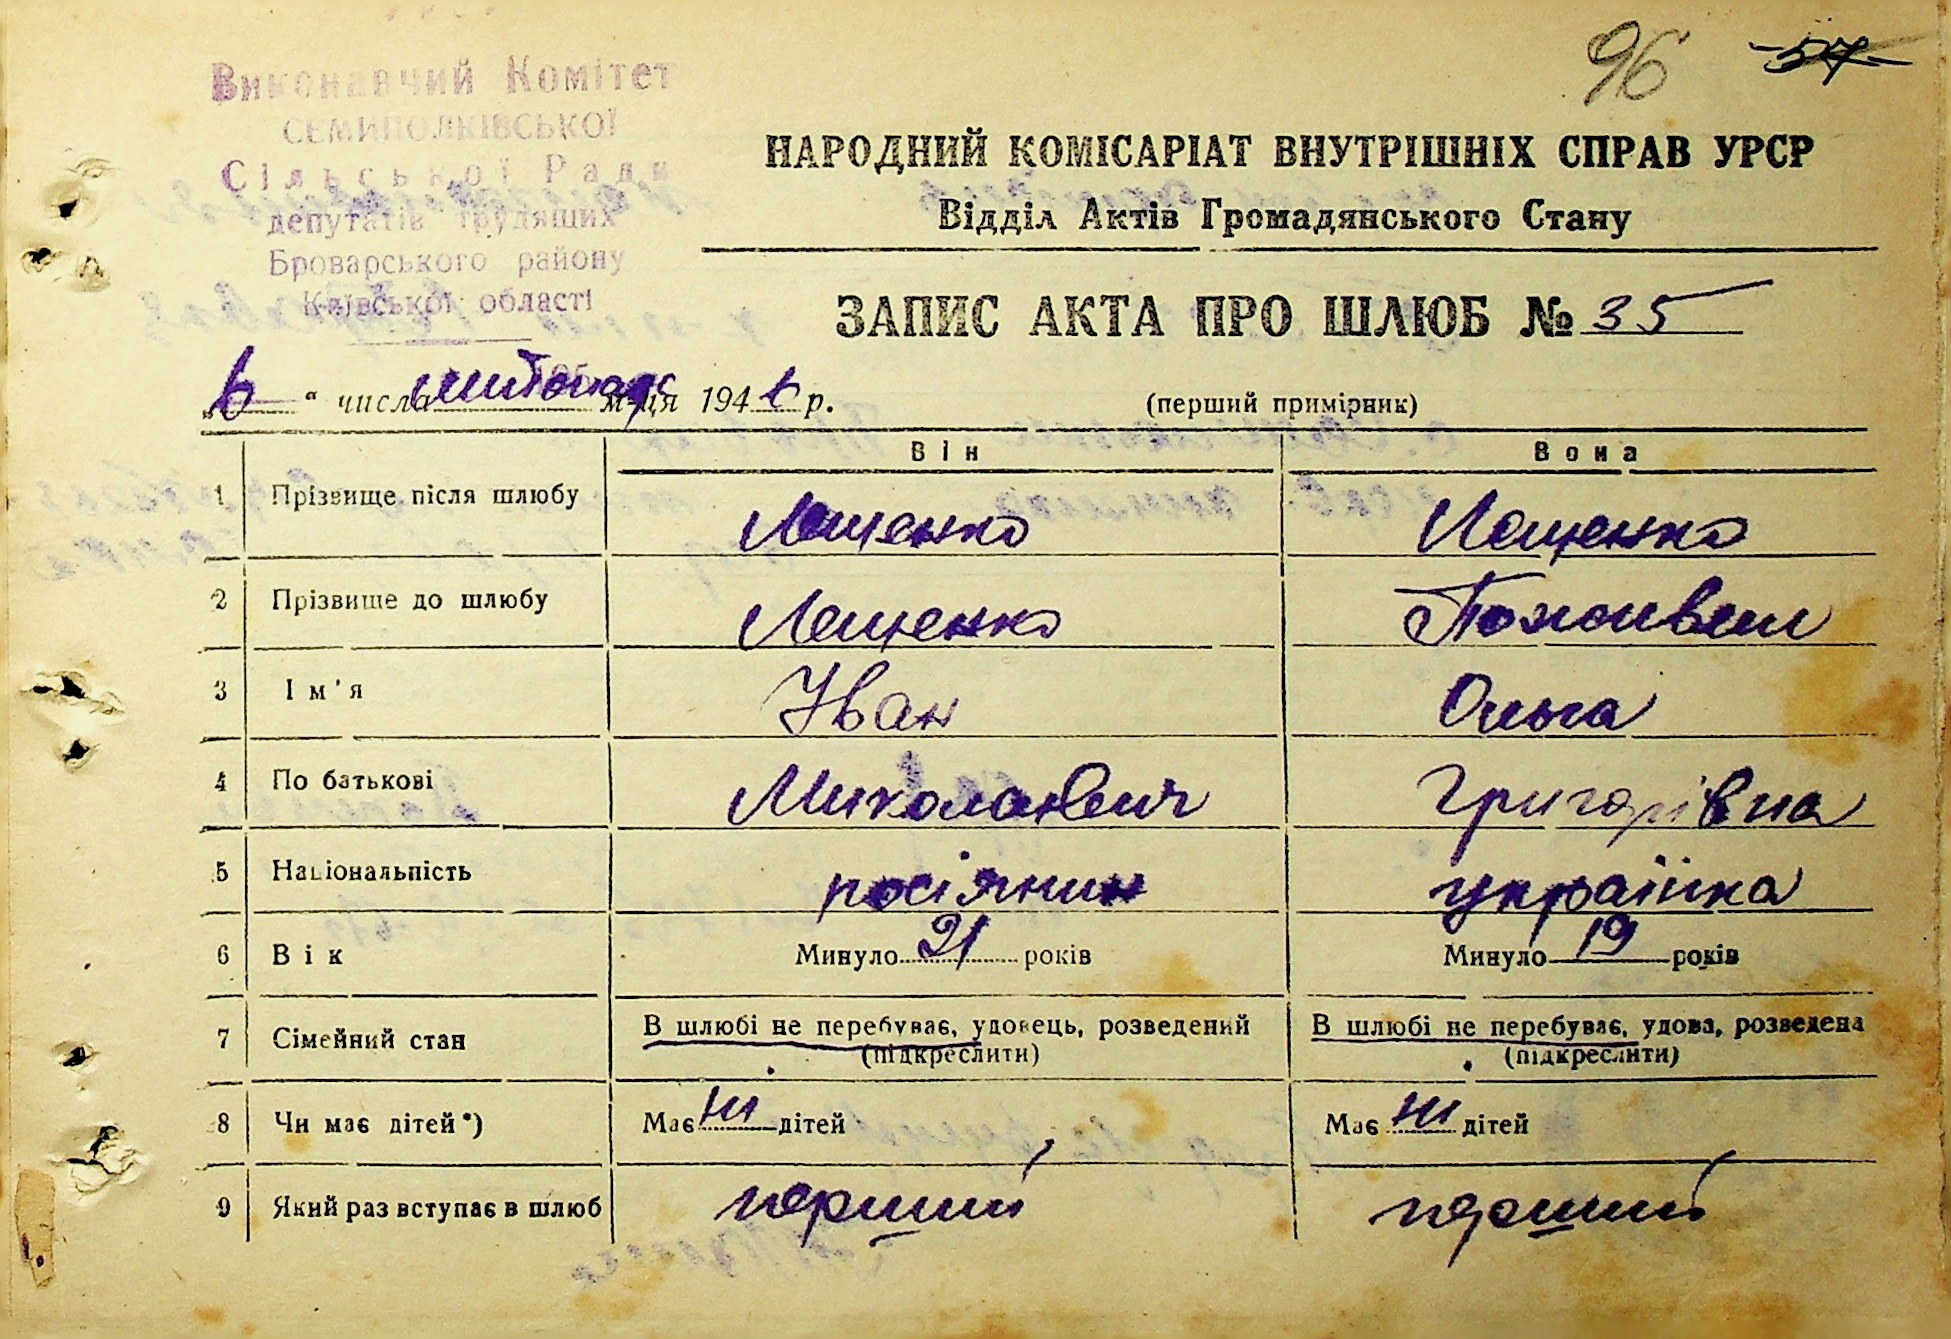 96 37
Виконавчий Комітет
СЕМИПОЛКІВСЬКОЇ
Сільської Ради
депутатів трудящих
Броварського району
Київської області
НАРОДНИЙ КОМІСАРІАТ ВНУТРІШНІХ СПРАВ УРСР
Відділ Актів Громадянського Стану
ЗАПИС АКТА ПРО ШЛЮБ № 35
„6“ числа листопада м-ця 1946 р. (перший примірник)
Він Вона
1 Прізвище після шлюбу Лещенко Лещенко
2 Прізвище до шлюбу Лещенко
3 Ім'я Іван Ольга
4 По батькові Миколаєвич Григорівна
5 Національність росіянин українка
6 Вік Минуло 21 років Минуло 19 років
7 Сімейний стан В шлюбі не перебуває, удовець, розведений В шлюбі не перебуває, удова, розведена
(підкреслити) (підкреслити)
8 Чи має дітей*) Має ні дітей Має ні дітей
9 Який раз вступає в шлюб перший перший